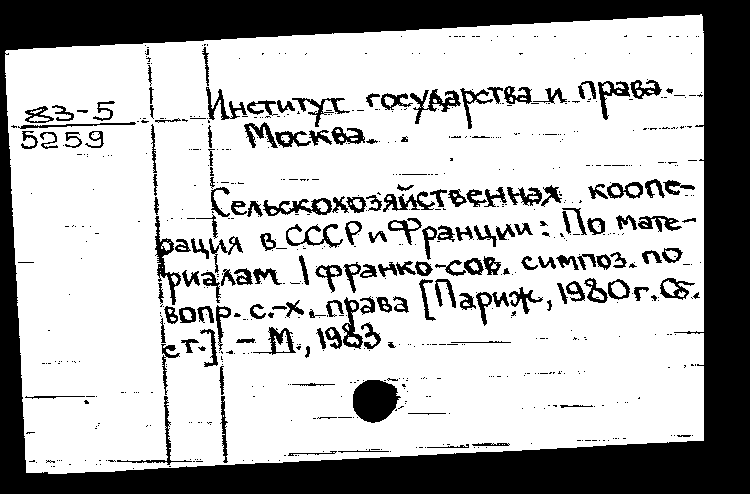 83-5
5259
Институт государства и права.
Москва.
Сельскохозяйственная коопе-
рация в СССР и Франции: По мате-
риалам I франко-сов. симпоз. по
вопр. с.-х. права [Париж, 1980г. Сб.
ст.]. - М., 1983.